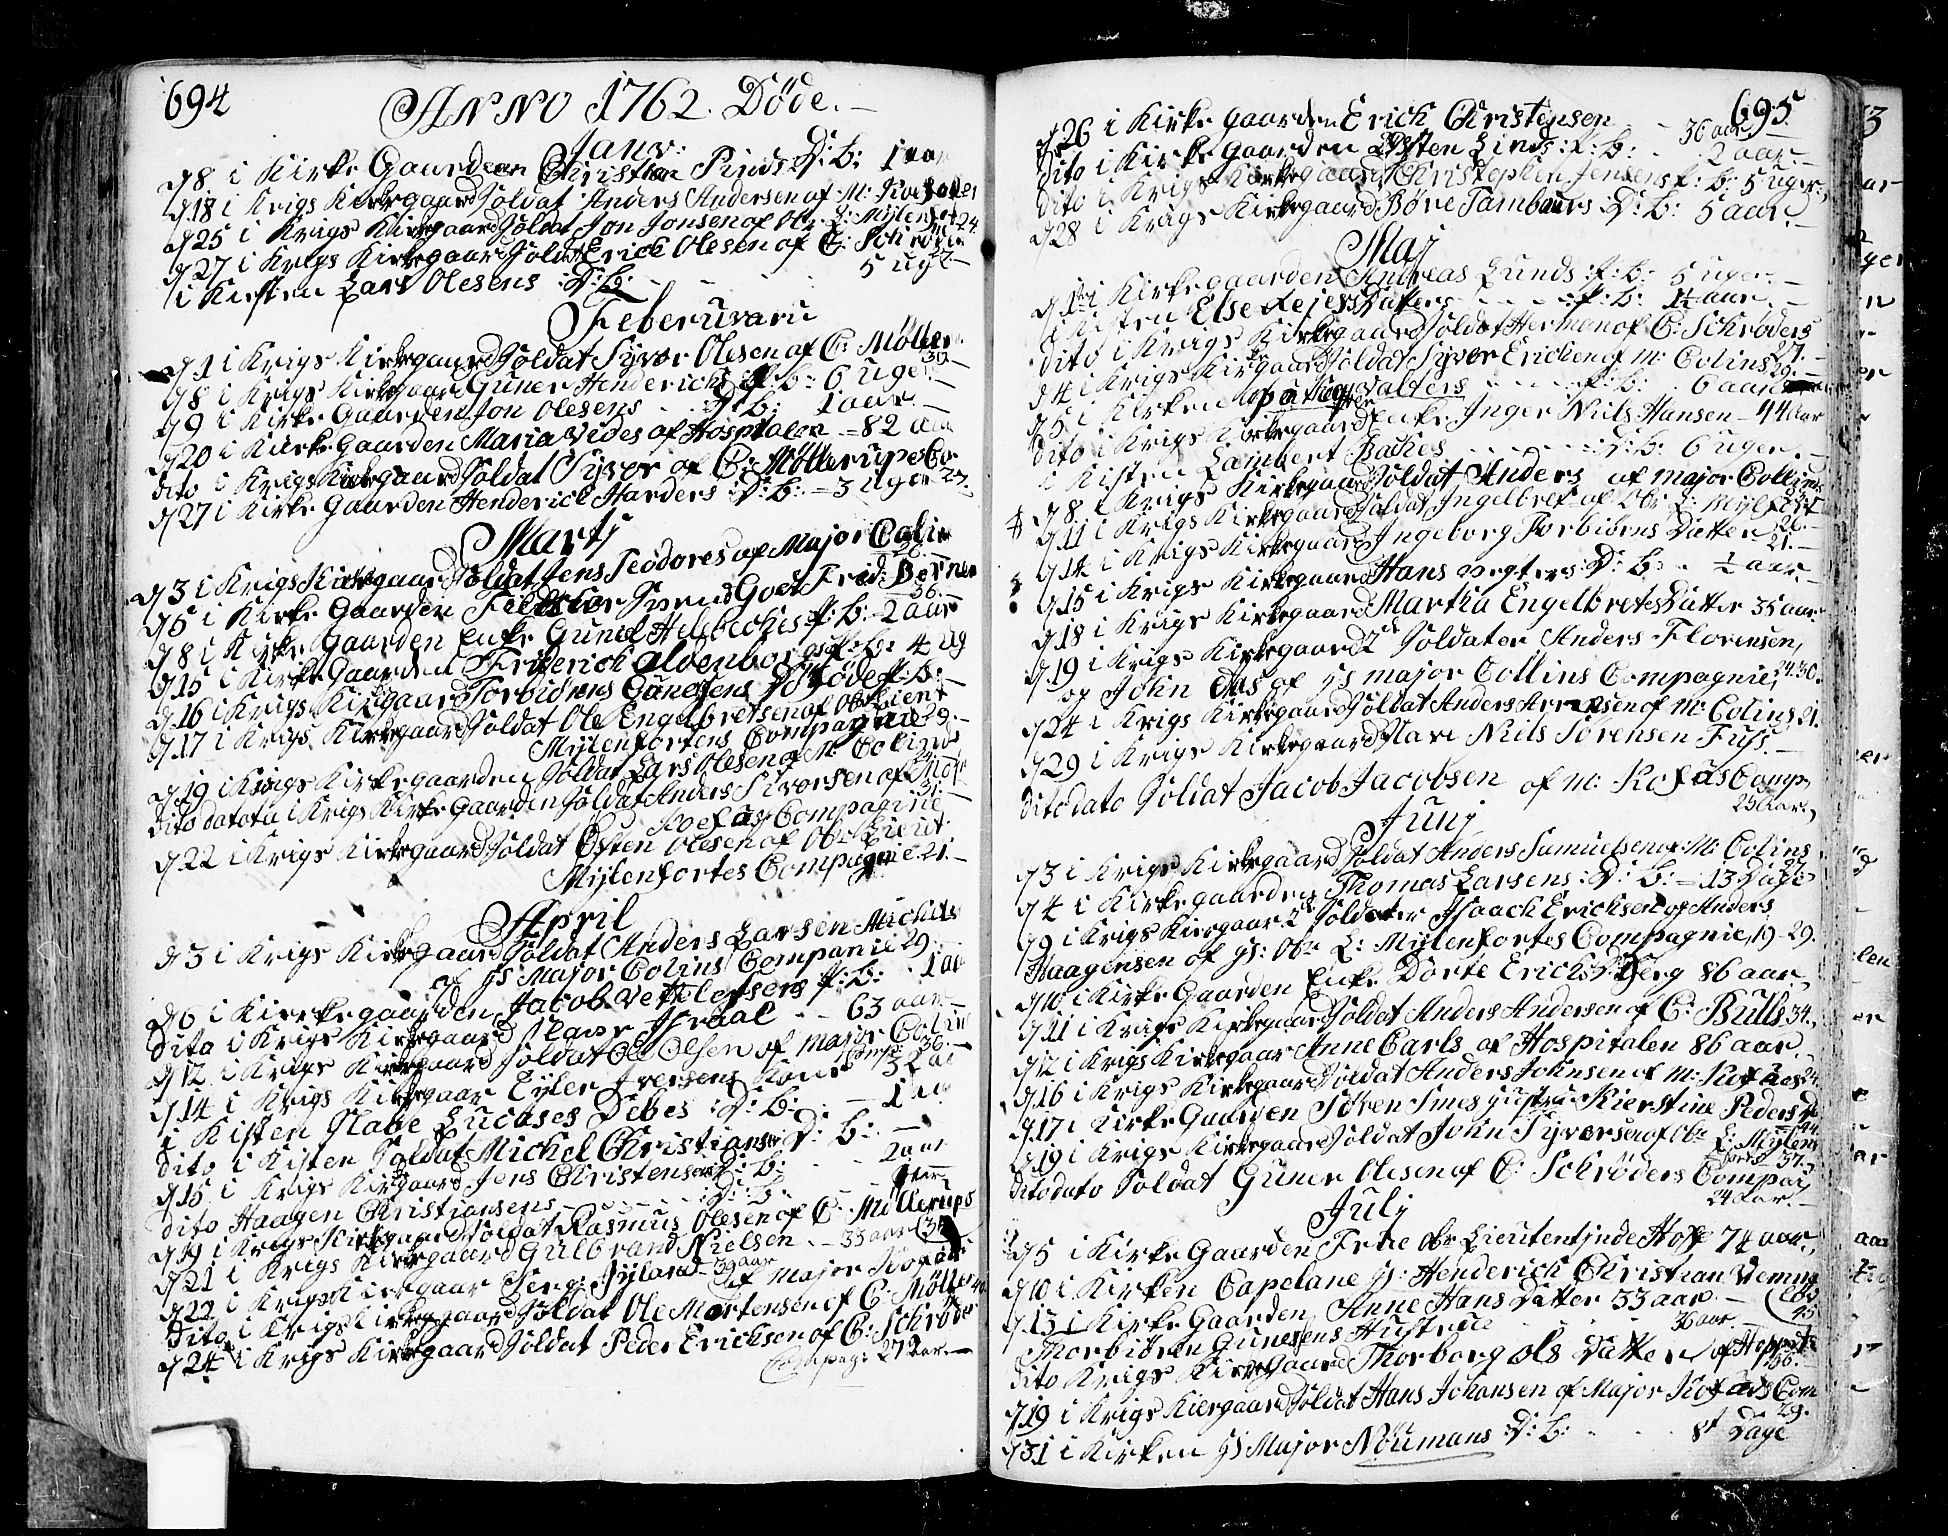 694
ANNO 1762. Døde.
Janv:
d 8 i Kirke Gaarden Christian Pinds D: b: 1 aar
d 18 i Krigs Kirkegaard Soldat Anders Andersen af M:
d 25 i Krigs Kirkegaard Soldat Jon Jonsen af Obr: L: Mylenfort 24
d 27 i Krigs Kirkegaard Soldat Erick Olesen af C: Schrøder
i Kiesten Lars Olesens D: b: 5 uger
Feberuvaru
d 1 i Krigs Kirkegaard Soldat Syver Olesen af C: Møller
30
d 8 i Krigs Kirkegaard Guner Henderichs P: b: 6 uger
d 9 i Kirke Gaarden Jon Olesens D: b: 1 aar
d 20 i Kirke Gaarden Maria Vides af Hospitalen 82 aar
dito i Krigs Kirkegaard Soldat Syver af C: Møllerups Co
d 27 i Kirke Gaarden Henderick Harders D: b: 3 uger 27.
Martj
d 3 i Krigs Kirkegaard Soldat Jens Teodores af Major Colin
26.
d 5 i Kirke Gaarden Feldskier Svend Goet Fred: Berner
36.
d 8 i Kirke Gaarden Enke Gunel P: b: 2 aar
d 15 i Kirke Gaarden Friderich Aldenborgs P: b: 4 ug
d 16 i Krigs Kirkegaard Torbiørns Gunelsens Dødføde P: b:
d 17 i Krigs Kirkegaard Soldat Ole Engelbretsen af Ob: Lieut
Mylenfortens Compagnie 29.
d 19 i Krigs Kirkegaarden Soldat Lars Olesen af M: Colins
dito dato i Krigs Kirke Gaarden Soldat Anders Sivorsen af Major
Roefas Compagnie 31.
d 22 i Krigs Kirkegaard Soldat Østen Olesen af Obr: Lieut
Mylenfortes Compagnie 21.
April
d 3 i Krigs Kirkegaard Soldat Anders Larsen Michels
af Hs: Major Colins Companie 29.
d 6 i Kirkegaarden Jacob P: b: 1 aar
dito i Krigs Kirkegaard Slave Israal 63 aar
d 12 i Krigs Kirkegaard Soldat Ole Olsen af Major Colins
Comp: 36.
d 14 i Krigs Kirkegaar Eyler Iversens Kone 32 aar
i Kisten Slave Lucases Debes D: b: 1 aar
dito i Kisten Soldat Michel Christiansen D: b:
d 15 i Krigs Kirkegaard Jens Christensen D: b: 2 aar
dito Haagen Christiansens D: b:
d 19 i Krigs Kirkegaard Soldat Rasmus Olesen af C: Møllerups
d 21 i Krigs Kirkegaard Gulbrand Nielsen 33 aar
d 22 i Krigs Kirkegaar Serg: Jyland 39 aar af Major
dito i Krigs Kirkegaard Soldat Ole Mortensen af C: Møller
d 24 i Krigs Kirkegaard Soldat Peder Ericksen af C: Schrøder
Compag: 27 aar
695
d 26 i Kirke Gaarden Erick Christensen 36 aar
Dito i Kirke Gaarden Østen Linds P: b: 2 aar
Dito i Krigs Kirkegaard Christopher Jensens P: b: 5 uger
d 28 i Krigs Kirkegaard Børe Tambours D: b: 5 aar
Maj
d 1 i Kirkegaarden Andreas Lunds P: b: 5 uger
i Kisten Else Lejess Datters P: b: 1½ aar
Dito i Krigs Kirkegaard Soldat Herman af C: Schrøders
27.
d 4 i Krigs Kirkegaard Soldat Syver Ericksen af M: Colins
29.
d 5 i Kirken P: b: 6 aar
dito i Krigs Kirkegaard Enke Inger Niels Hansen 44 aar
i Kisten Lambert Backes D: b: 6 uger
d 8 i Krigs Kirkegaard Soldat Anders af Major Collins
d 11 i Krigs Kirkegaard Soldat Ingelbret af Obr: L: Mylfort
26.
d 14 i Krigs Kirkegaard Ingeborg Torbiørns Datter 21.
d 15 i Krigs Kirkegaard Hans Vegters D: b: ½ aar
d 18 i Krigs Kirkegaard Martha Engelbrets Datter 35 aar
d 19 i Krigs Kirkegaard 2de Soldater Anders Florensen,
og John Ols af Hs Major Collins Compagnie, 24. 30.
d 24 i Krigs Kirkegaard Soldat Anders Arensen af M: Colins 21.
d 29 i Krigs Kirkegaard Slave Niels Sørensen Fuss.
dito dato Soldat Jacob Jacobsen af M: Rofas Comp
25 aar.
Junj
d 3 i Krigs Kirkegaard Soldat Anders Samuelsen af M: Colins
27.
d 4 i Kirkegaarden Thomas Larsens D: b: 13 Dage
d 9 i Krigs Kiergaar 2de Soldater Isaach Ericksen og Anders
Haagensen af Hs: Obr: L: Mylenfortes Compagnie, 19-29.
d 10 i Kirke Gaarden Enke Dorte Ericks Berg 86 aar
d 11 i Krigs Kirkegaard Soldat Anders Andersen af C: Bulls 34.
d 12 i Krigs Kirkegaar Anne Carls af Hospitalen 86 aar
d 16 i Krigs Kirkegaard Soldat Anders Johnsen af M: Rofaes 24.
d 17 i Kirke Gaarden Søren Smes Hustru Kierstine Peders D
44.
d 19 i Krigs Kirkegaard Soldat John Syversen af Obr: L: Mylen
fort 37.
dito dato Soldat Guner Olesen af C: Schrøders Compag
24 aar.
Julj
d 5 i Kirke Gaarden Frue Obr: Lieutentjnde Hoff 74 aar.
d 10 i Kirken Capelane Hr: Henderich Christian Vemme
d 13 i Kirke Gaarden Anne Hans Datter 33 aar
45
Thorbiøren Gunelsens Hustrue 36 aar.
dito Krigs Kirkegaard Thorborg Ols Datter af
56.
d 19 i Krigs Kiergaard Soldat Hans Johansen af Major Rofaes Com
29.
d 31 i Kirken Hs Major Nøumans D: b: 8t Dage